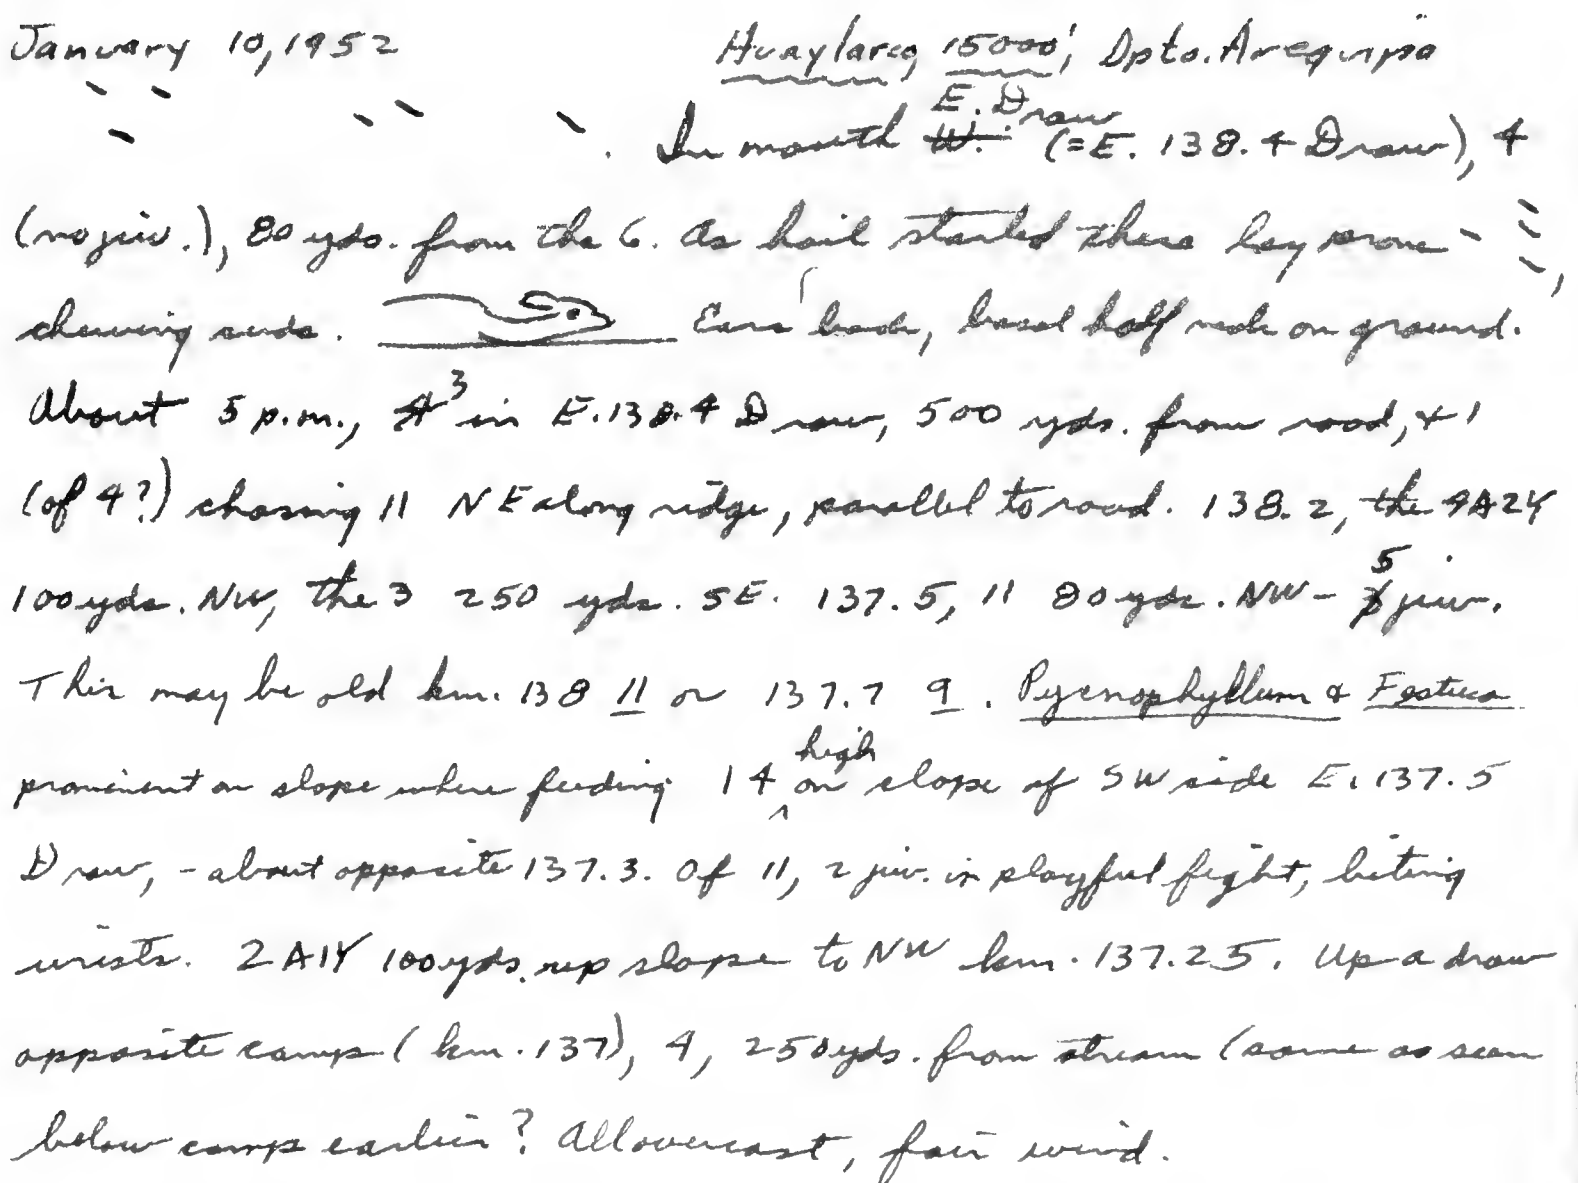 January 10, 1952 Huaylarco, 15000', Dpto. Arequipa
E. Draw
In mouth W. (=E. 138.4 Draw), 4
(no juv.), 80 yds. from the 6. As hail started these lay prone -
chewing cuds. Ears back, basal half neck on ground.
About 5 p.m., 4 3 in E. 138.4 Draw, 500 yds. from road, + 1
(of 4?) chasing 11 NE along ridge, parallel to road. 138.2, the 9A2Y
100 yds. NW, the 3 250 yds. SE. 137.5, 11 80 yds. NW - 3 5 juv.
This may be old km. 138 11 or 137.7 9. Pycnophyllum & Festuca
prominent on slope where feeding. 14 high on slope of SW side E. 137.5
Draw, - about opposite 137.3. Of 11, 2 juv. in playful fight, biting
wrists. 2A1Y 100 yds. up slope to NW km. 137.25. Up a draw
opposite camp (km. 137), 4, 250 yds. from stream (same as seen
below camp earlier? All overcast, fair wind.